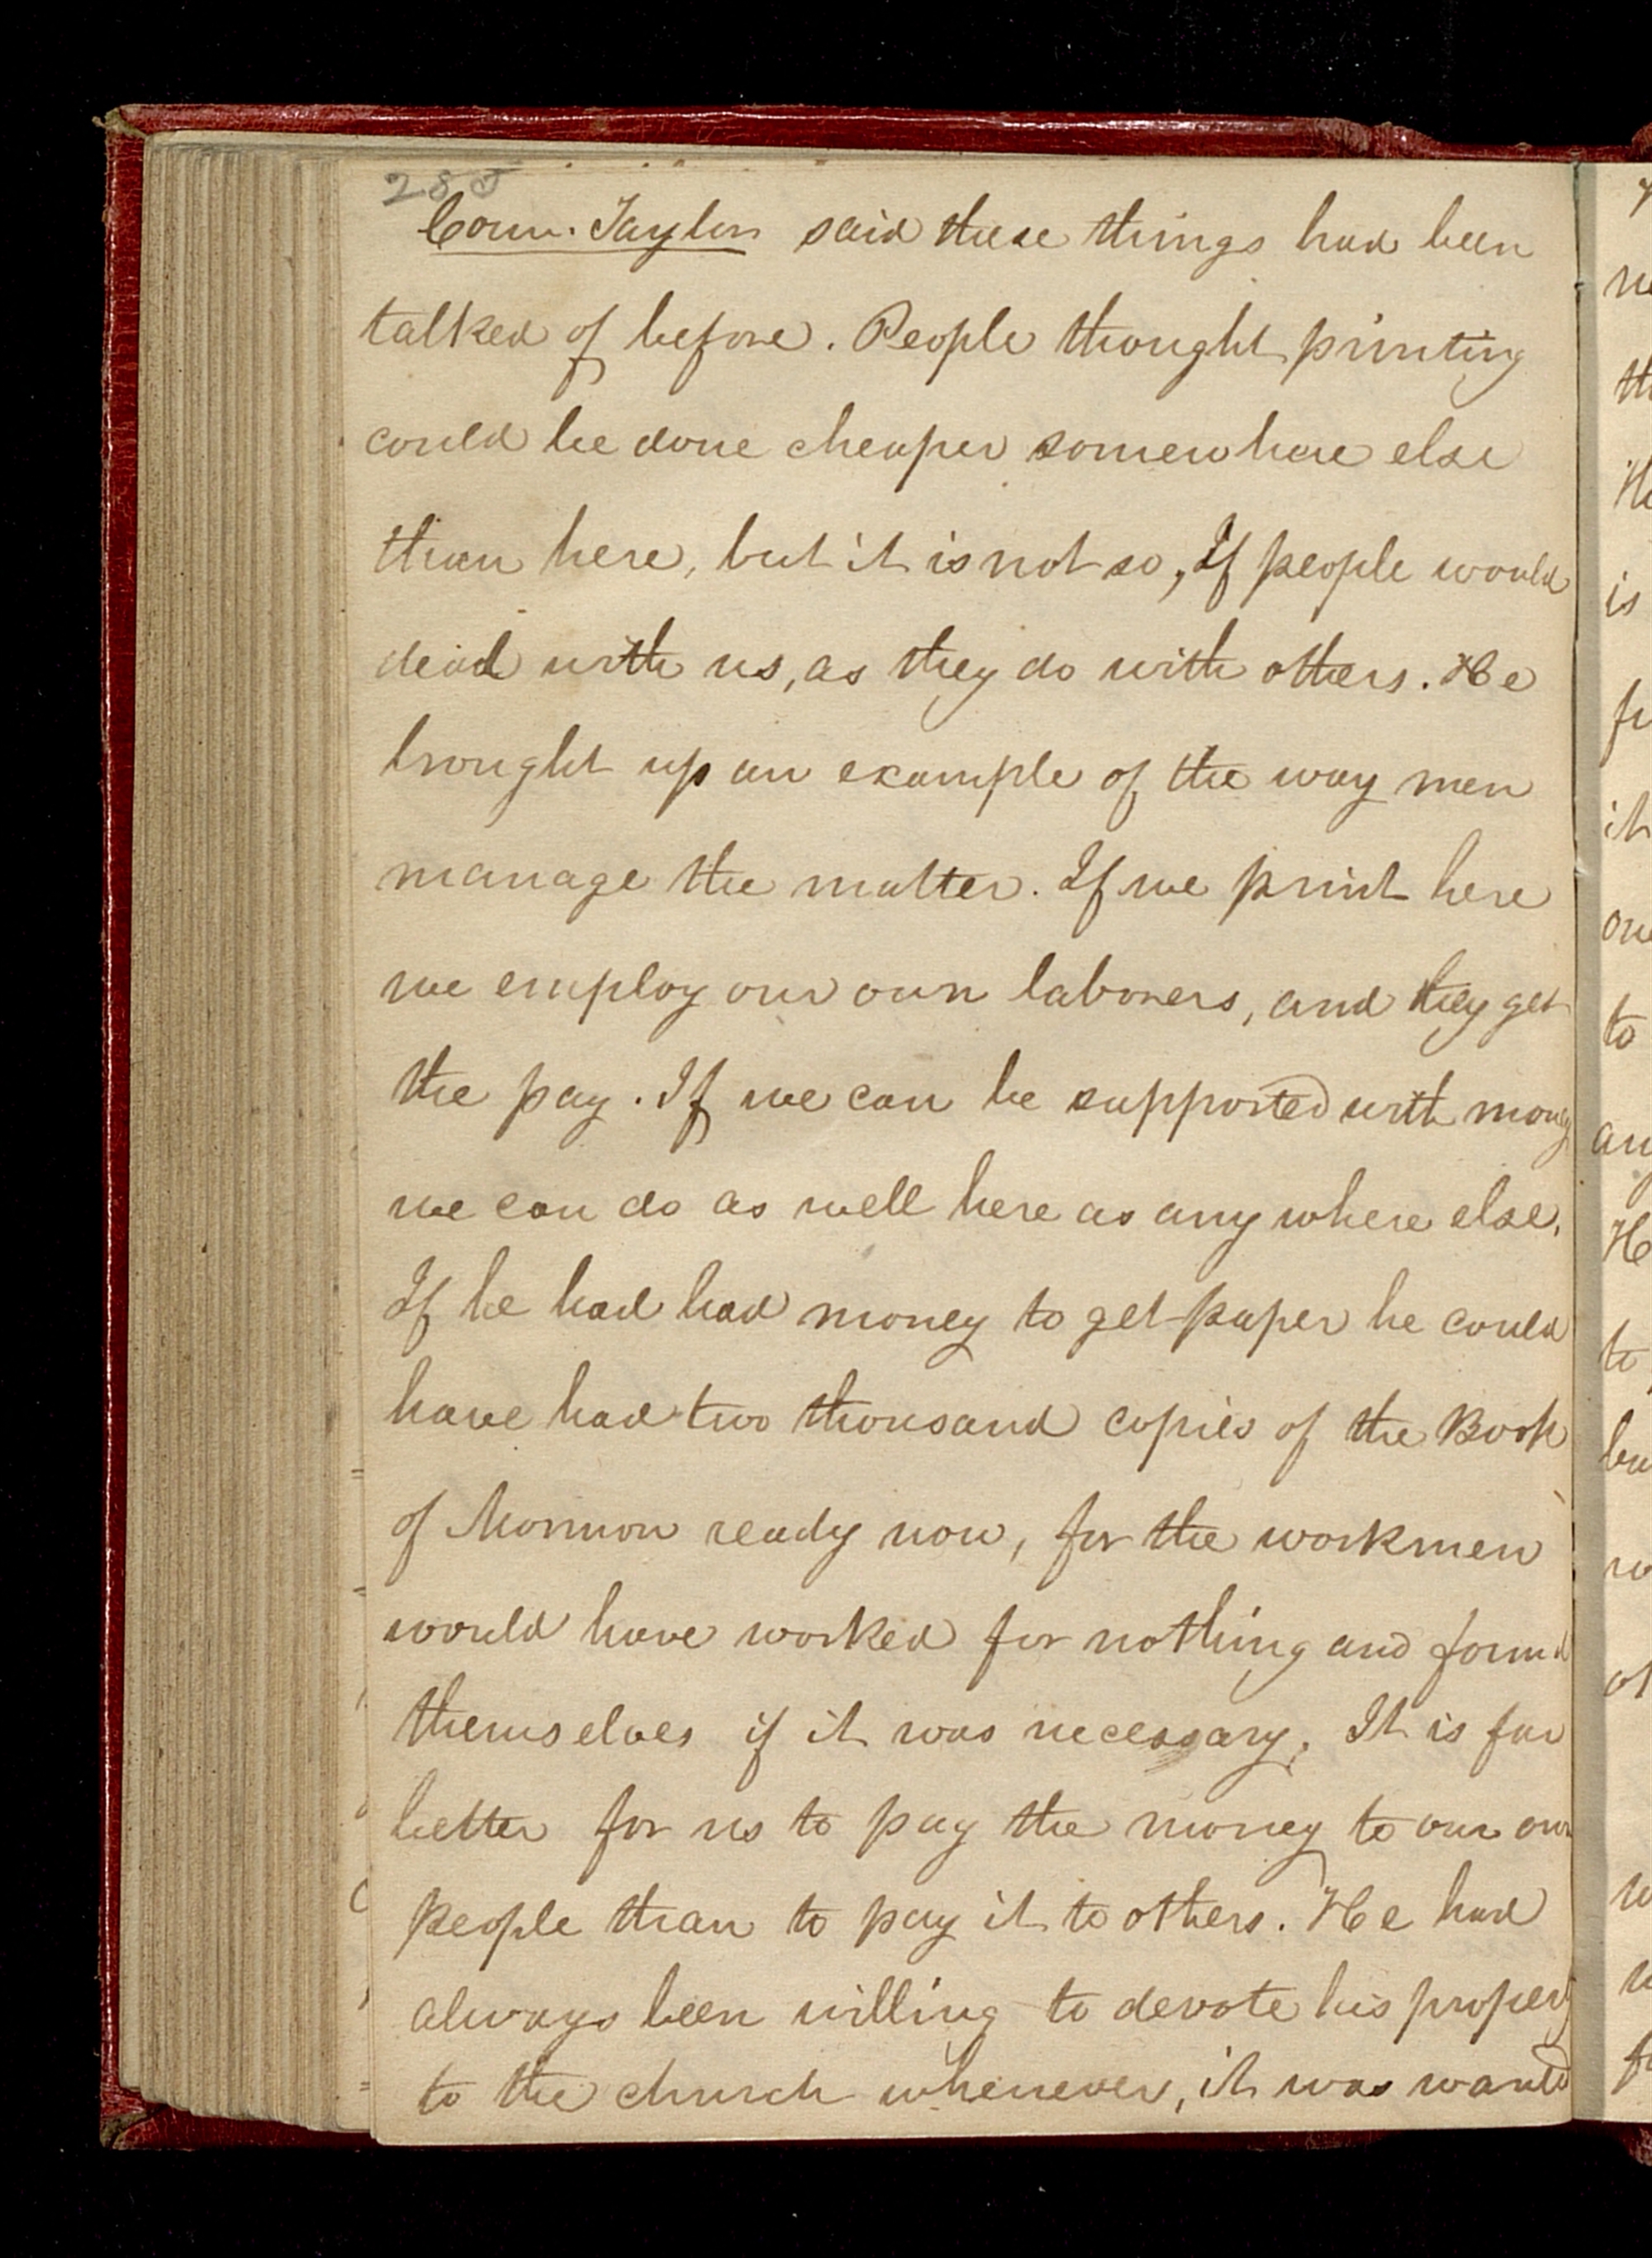 285
Coun. Taylor said these things had been
talked of before. People thought printing
could be done cheaper somewhere else
than here, but it is not so, If people would
deal with us, as they do with others. He
brought up an example of the way men
manage the matter. If we print here
we employ our own laborers, and they get
the pay. If we can be supported with money
we can do as well here as any where else.
If he had had money to get paper he could
have had two thousand copies of the Book
of Mormon ready now, for the workmen
would have worked for nothing and found
themselves if it was necessary. It is far
better for us to pay the money to our own
people than to pay it to others. He had
always been willing to devote his property
to the church whenever, it was wanted